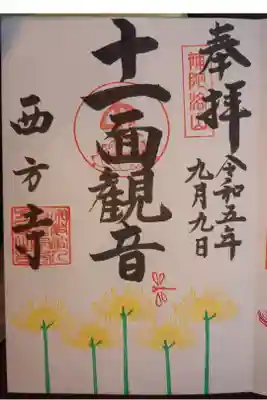 奉拝
令和五年
九月九日
十一面観音
西方寺